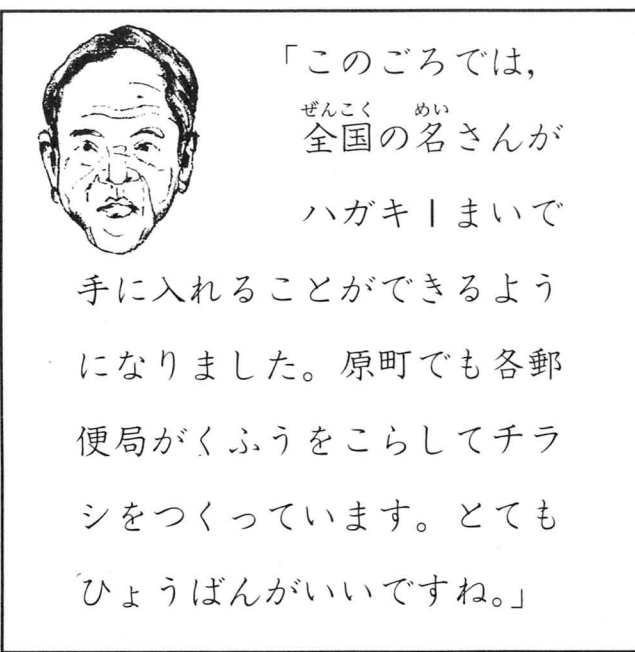 「このごろでは，
全国の名さんが
ハガキ1まいで
手に入れることができるよう
になりました。原町でも各郵
便局がくふうをこらしてチラ
シをつくっています。とても
ひょうばんがいいですね。」
ぜんこく めい